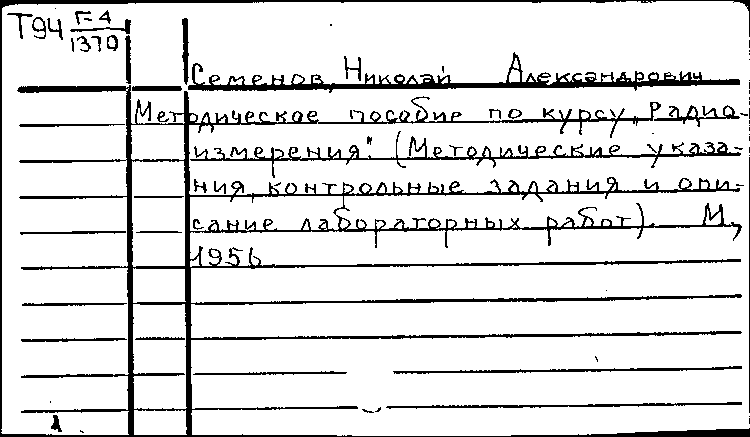 Т94 Г-4
1370
Семенов, Николай Александрович
Методическое пособие по курсу „Радио-
измерения". (Методические указа-
ния, контрольные задания и опи-
сание лабораторных работ). М.,
1956
1